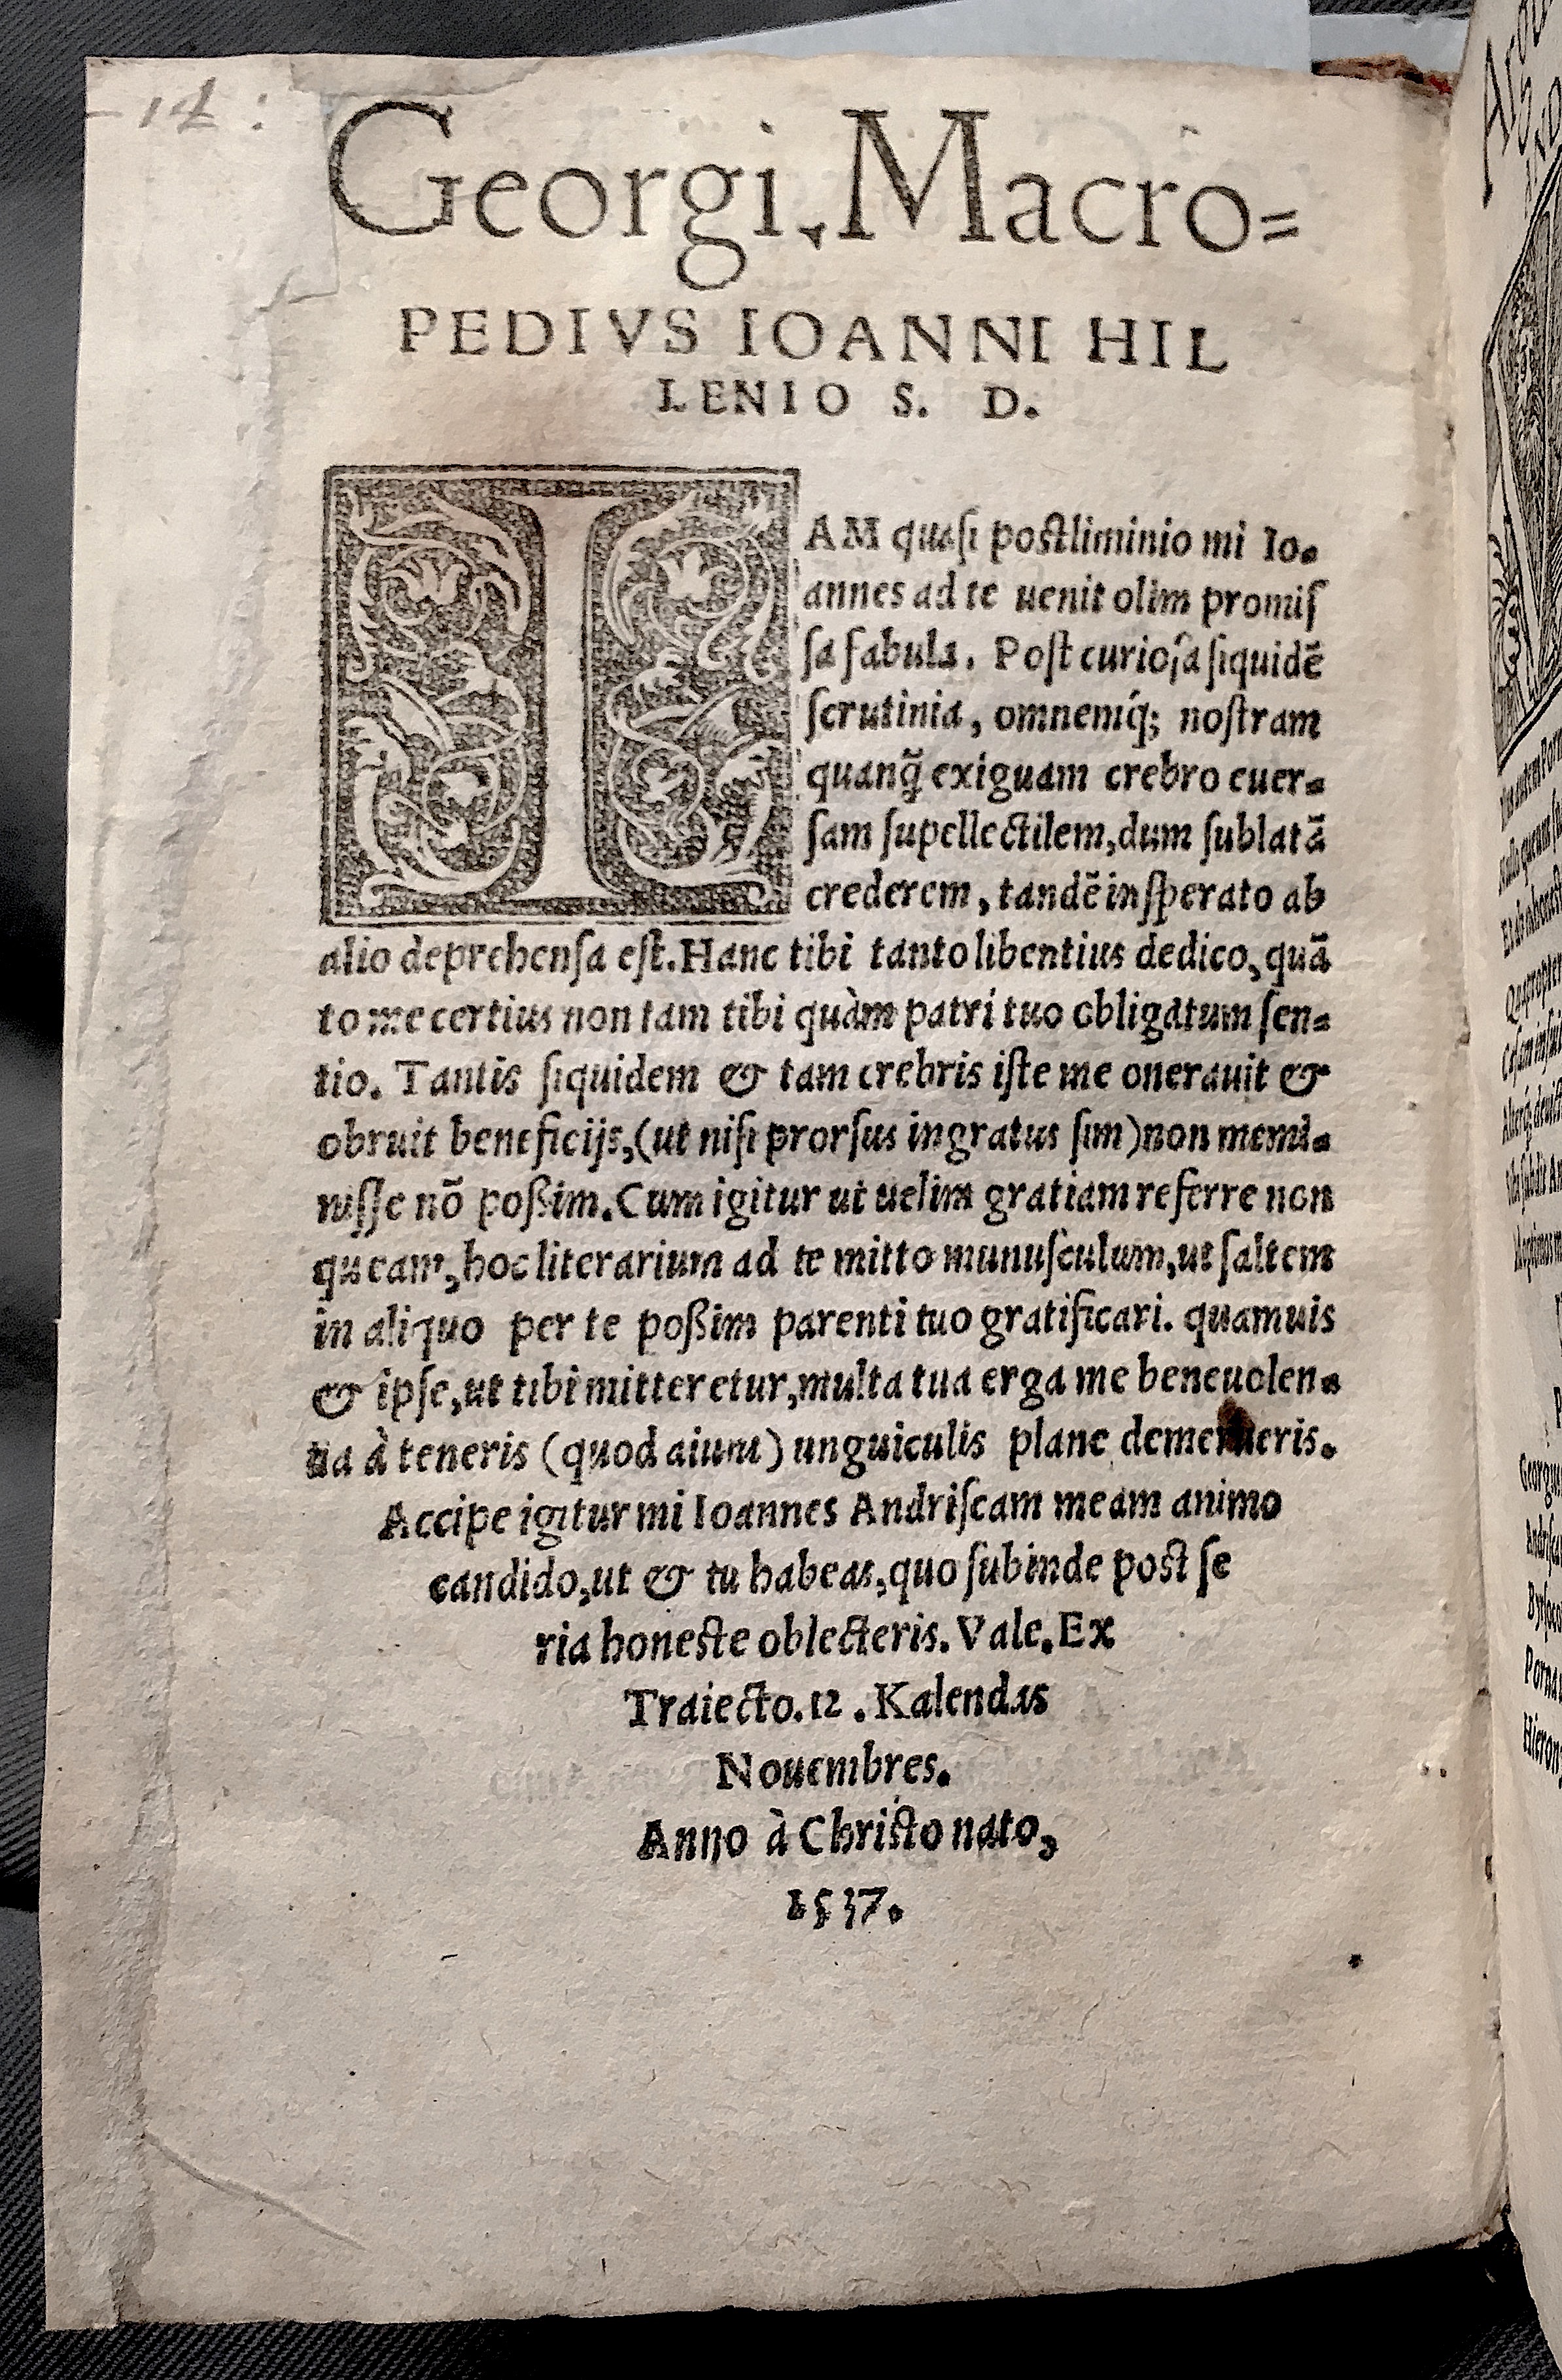 -14:
Georgi. Macro=
PEDIVS IOANNI HIL
LENIO S. D.
IAM quaſi poſtliminio mi Io=
annes ad te uenit olim promiſ
ſa fabula. Poſt curioſa ſiquidē
ſcrutinia, omnemq́; noſtram
quanq̃ exiguam crebro euer=
ſam ſupellectilem, dum ſublatā
crederem, tandē inſperato ab
alio deprehenſa eſt. Hanc tibi tanto libentius dedico, quā
to me certius non tam tibi quàm patri tuo obligatum ſen=
tio. Tantis ſiquidem & tam crebris iſte me onerauit &
obruit beneficijs, (ut niſi prorſus ingratus ſim) non memi=
niſſe nō poßim. Cum igitur ut uelim gratiam referre non
queam, hoc literarium ad te mitto munuſculum, ut ſaltem
in aliquo per te poßim parenti tuo gratificari. quamuis
& ipſe, ut tibi mitteretur, multa tua erga me beneuolen=
tia à teneris (quod aiunt) unguiculis plane demerueris.
Accipe igitur mi Ioannes Andriſcam meam animo
candido, ut & tu habeas, quo ſubinde poſt ſe
ria honeſte oblecteris. Vale. Ex
Traiecto. 12. Kalendas
Nouembres.
Anno à Chriſto nato,
1537.